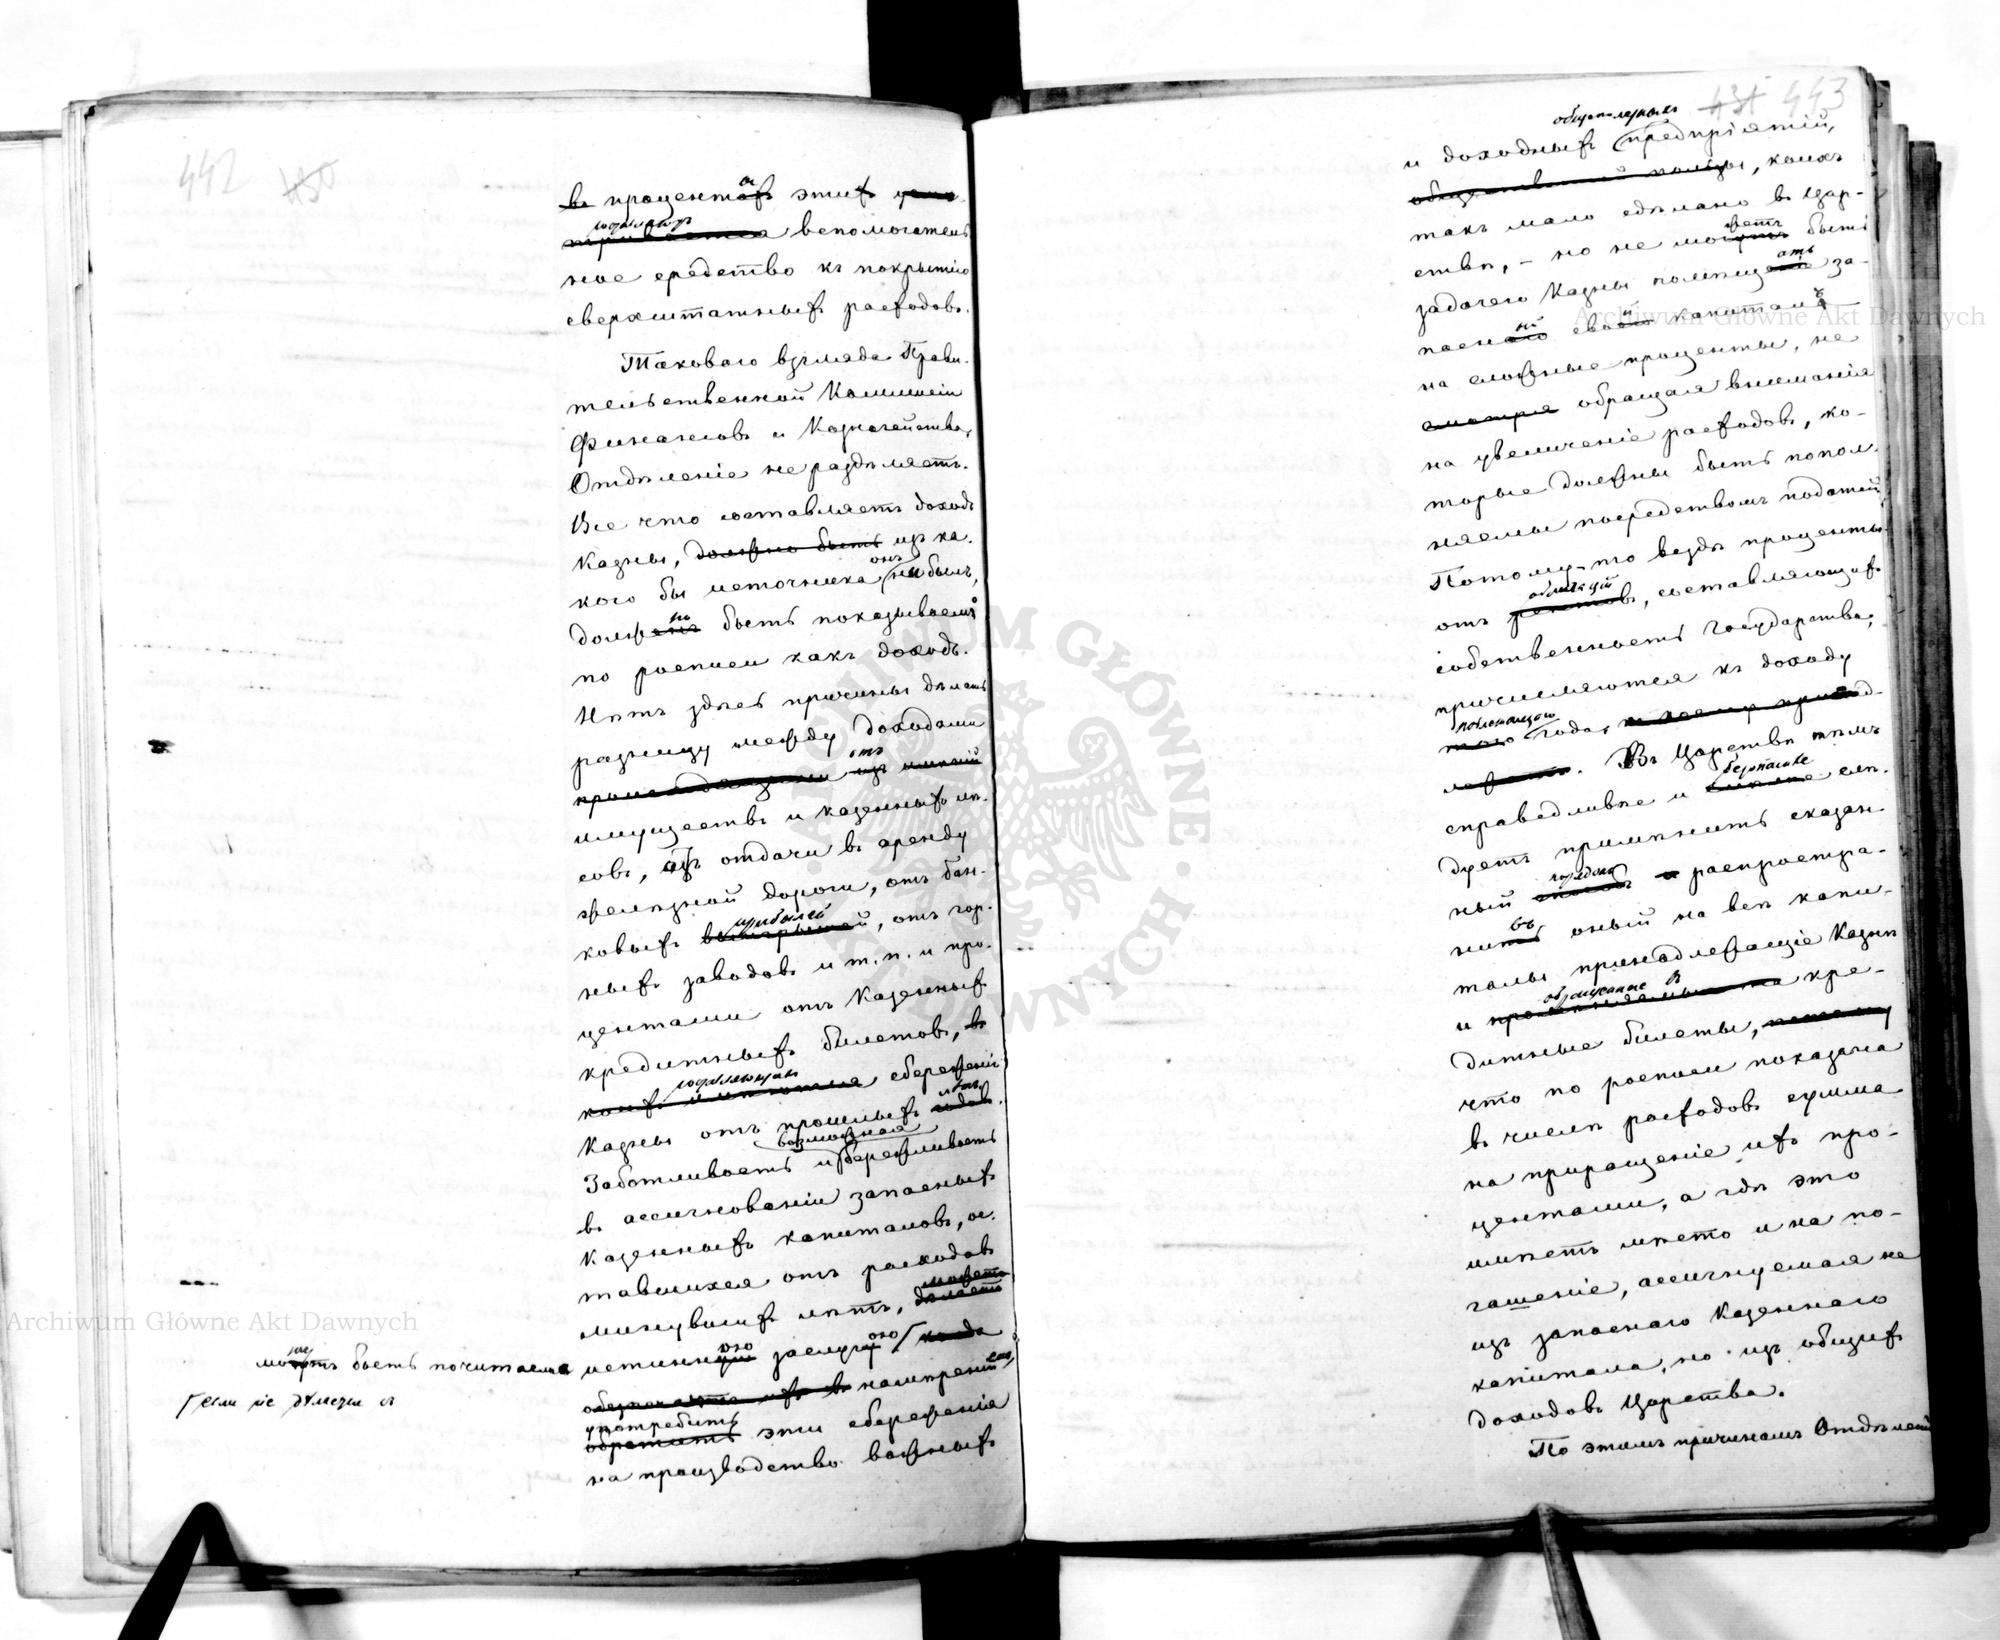 442
в процентахъ этихъ
составляютъ вспомогатель
ное средство къ покрытію
сверхштатныхъ расходовъ.
Таковаго взгляда Прави-
тельственной Коммисіи
Финансовъ и Казначейства,
Отдѣленіе не раздѣляетъ.
Все что составляетъ доходъ
Казны, должно быть изъ ка-
кого бы источника онъ ни былъ,
должно быть показываемо
по росписи какъ доходъ.
Нѣтъ здѣсь причины дѣлать
разницу между доходами
отъ
имуществъ и казенныхъ лѣ-
совъ, изъ отдачи въ аренду
желѣзной дороги, отъ бан-
ковыхъ прибылей, отъ гор-
ныхъ заводовъ и т. п. и про-
центами отъ Казенныхъ
кредитныхъ билетовъ, въ
составляющихъ сбереженія
Казны отъ прошлыхъ лѣтъ.
Заботливость и возможная бережливость
въ ассигнованіи запасныхъ
Казенныхъ капиталовъ, ос-
тавшихся отъ расходовъ
минувшихъ лѣтъ,
можетъ быть почитаема
истинною заслугою
намѣреній
употребить эти сбереженія
на производство важныхъ
Archiwum Główne Akt Dawnych
443
и доходныхъ общеполезныхъ предпріятій,
общественной пользы, коихъ
такъ мало сдѣлано въ Цар-
ствѣ, – но не можетъ быть
задачею Казны помѣщать за-
пасный свой капиталъ
на сложные проценты, не
смотря обращая вниманія
на увеличеніе расходовъ, ко-
торые должны быть попол-
няемы посредствомъ податей.
Потому-то вездѣ проценты
отъ облигацій, составляющихъ
собственность Государства,
причисляются къ доходу
года,
. Въ Царствѣ тѣмъ
справедливѣе и слѣ-
дуетъ примѣнить сказан-
ный порядокъ и распростра-
нить оный на всѣ капи-
талы принадлежащіе Казнѣ
и обращенные въ кре-
дитные билеты,
что по росписи показана
въ числѣ расходовъ сумма
на приращеніе ихъ про-
центами, а гдѣ это
имѣетъ мѣсто и на по-
гашеніе, ассигнуемая не
изъ запаснаго Казеннаго
капитала, но изъ общихъ
доходовъ Царства.
По этимъ причинамъ Отдѣленіе
Archiwum Główne Akt Dawnych
ARCHIWUM GŁÓWNE AKT DAWNYCH